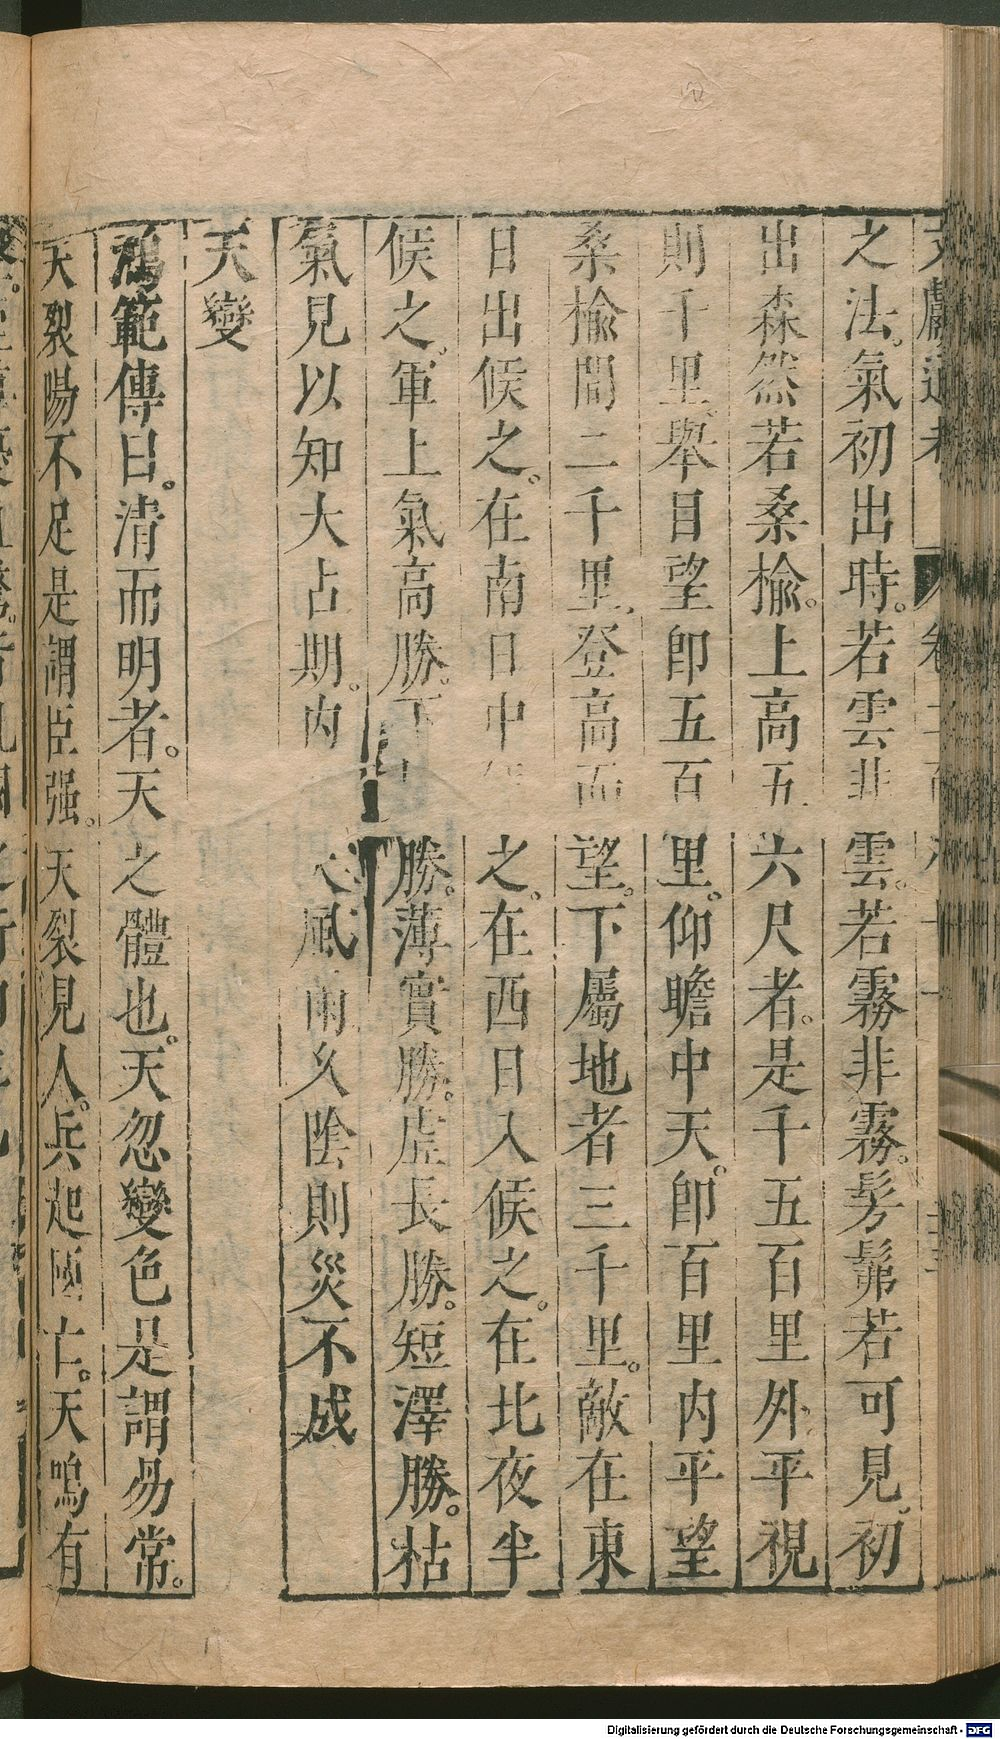 之法。氣初出時。若雲非雲。若霧非霧。髣髴若可見。初
出森然若桑榆。上高五六尺者。是千五百里外。平視
則千里。舉目望卽五百里。仰瞻中天。卽百里內。平望
桑榆間二千里。登高而望。下屬地者三千里。敵在東
日出候之。在南日中候之。在西日入候之。在北夜半
候之。軍上氣高勝。下勝。薄實勝。虛長勝。短澤勝。枯
氣見以知大占期。內風雨久陰則災不成
天變
鴻範傳曰。清而明者。天之體也。天忽變色是謂易常。
天裂陽不足是謂臣强。天裂見人。兵起國亡。天鳴有
Digitalisierung gefördert durch die Deutsche Forschungsgemeinschaft - DFG